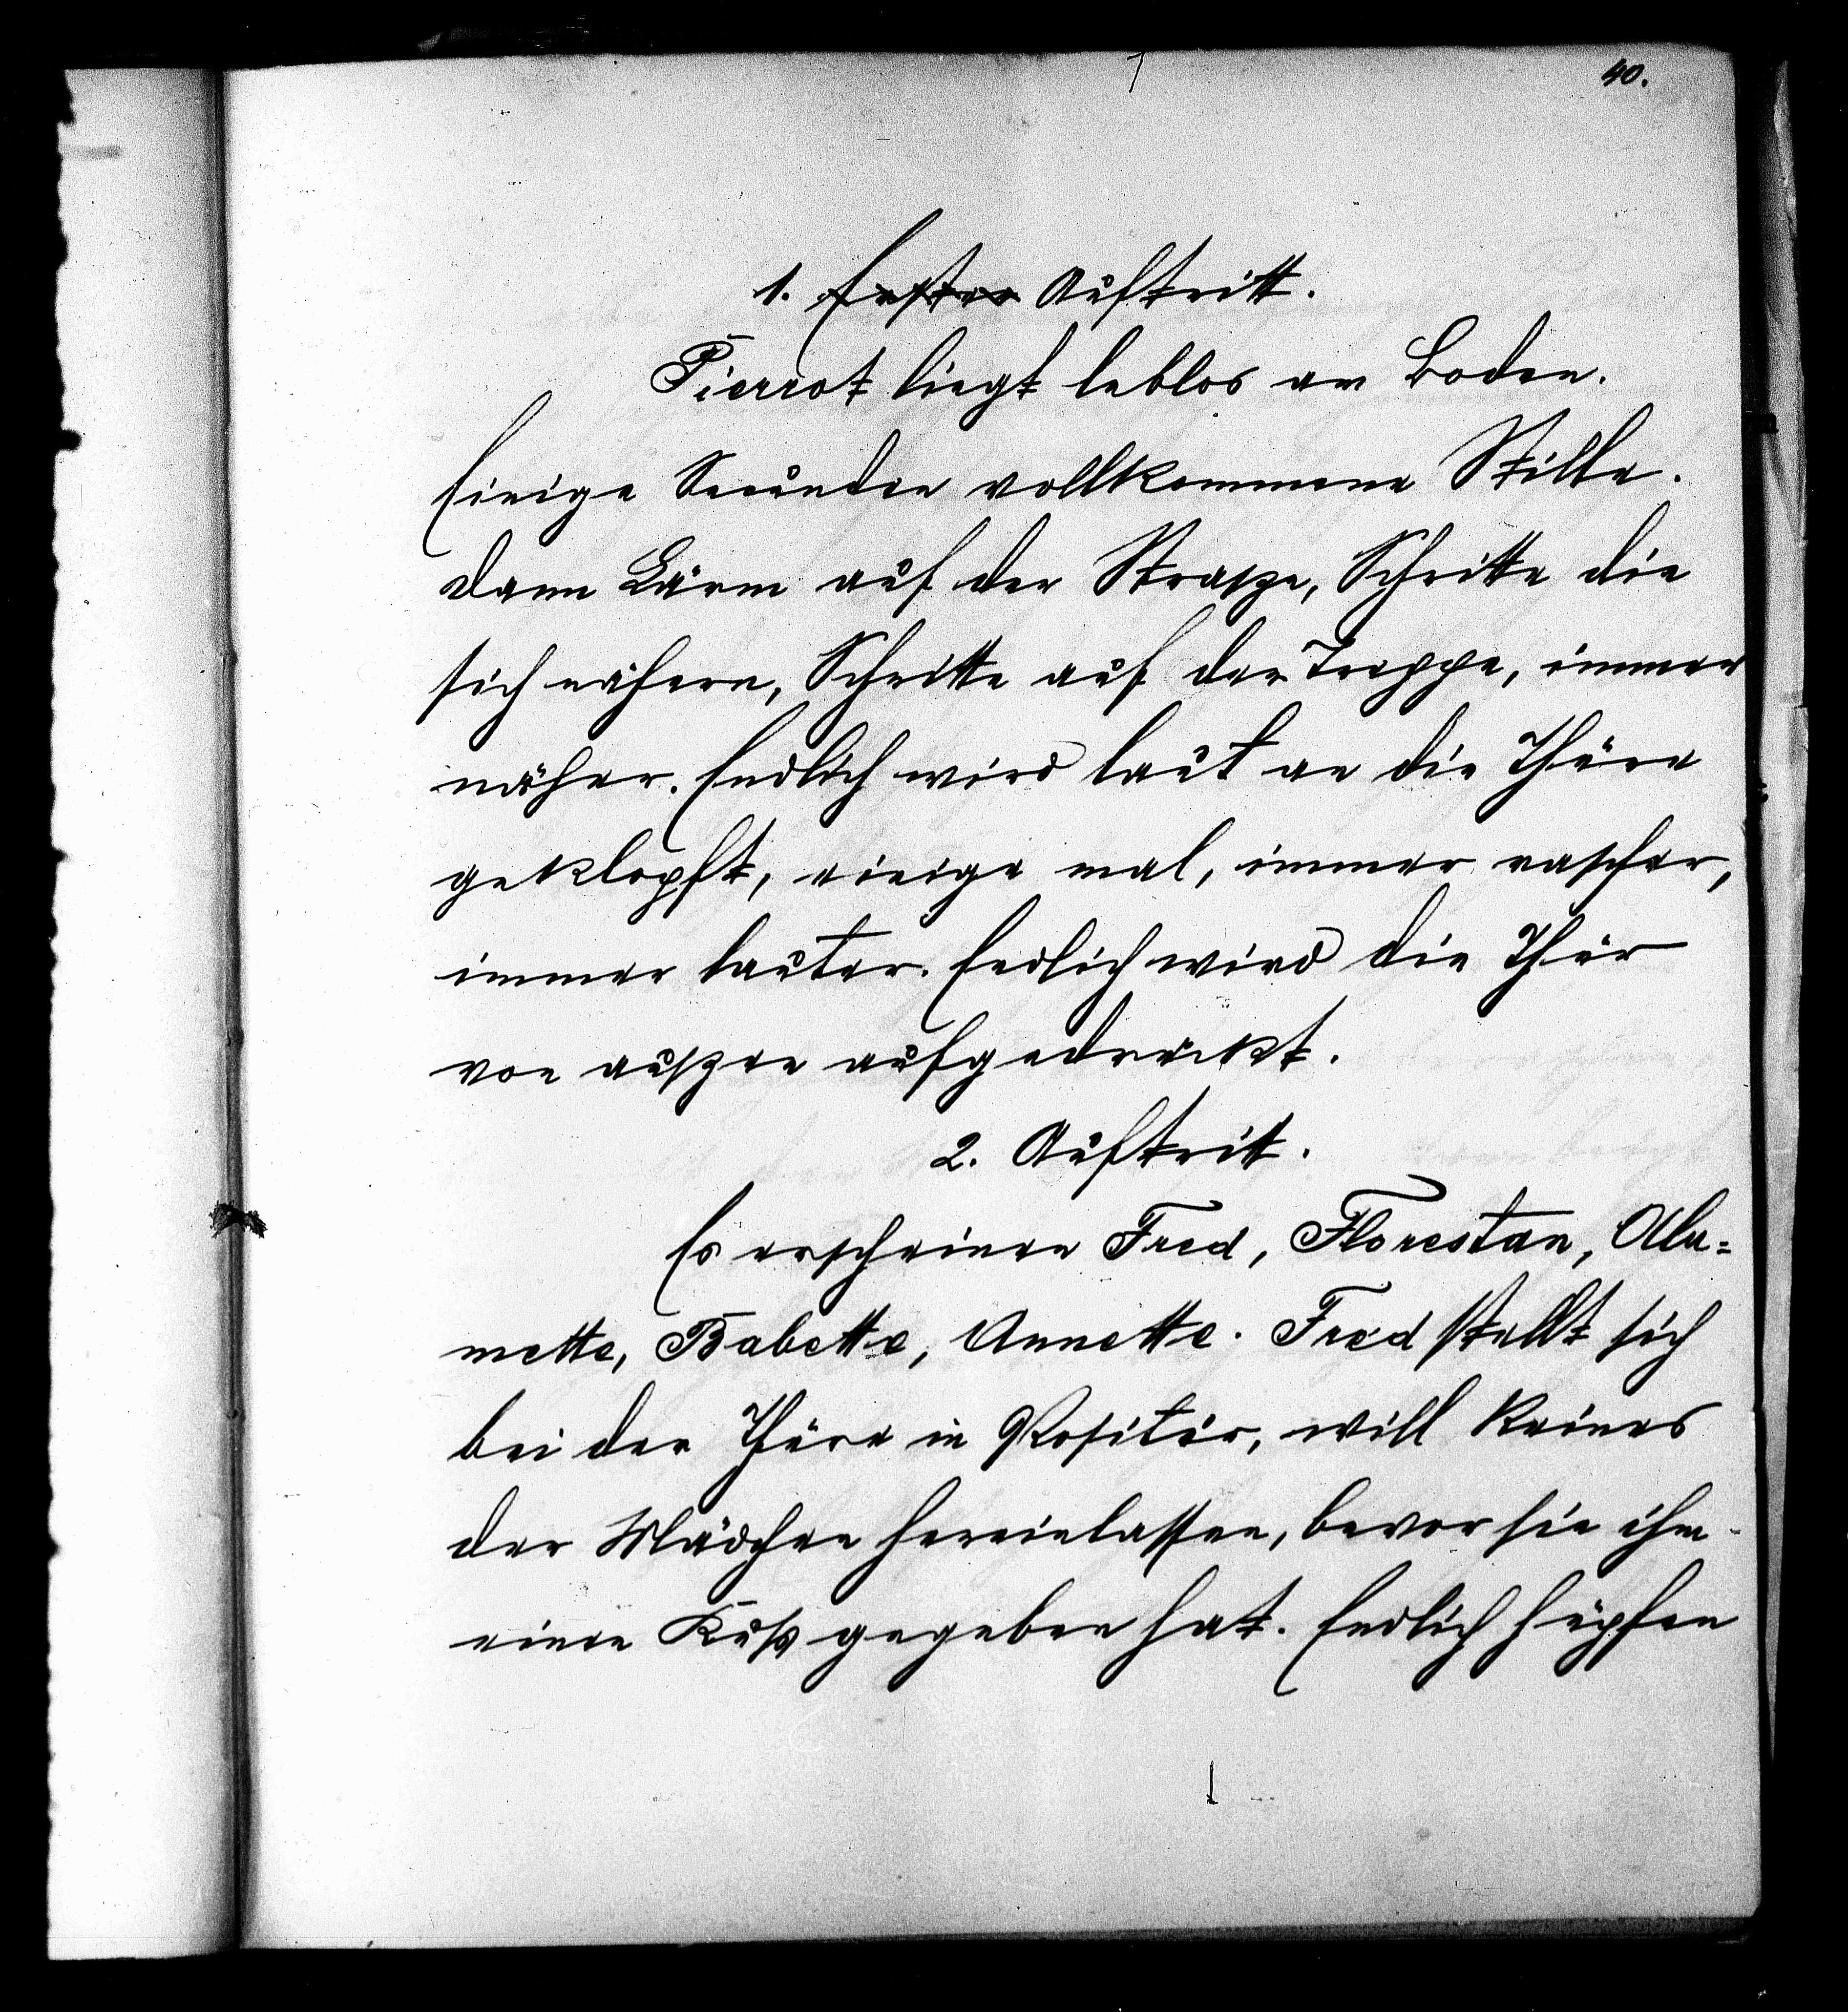 40.
1. Erster Auftritt.
Pierrot liegt leblos am Boden.
Einige Secunden vollkommene Stille.
Dann Lärm auf der Strasze, Schritte die
sich nähern, Schritte auf der Treppe, immer
näher. Endlich wird laut an die Thüre
geklopft, einige mal, immer rascher,
immer lauter. Endlich wird die Thür
von auszen aufgedrückt.
2. Auftritt.
Es erscheinen Fred, Florestan, Alu=
mette, Babette, Annette. Fred stellt sich
bei der Thüre in Positur, will keines
der Mädchen hereinlassen, bevor sie ihm
einen Kuss gegeben hat. Endlich hüpfen